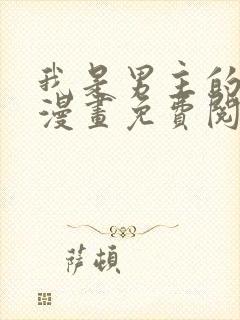 我是男主的
漫畫免費閱
萨頓